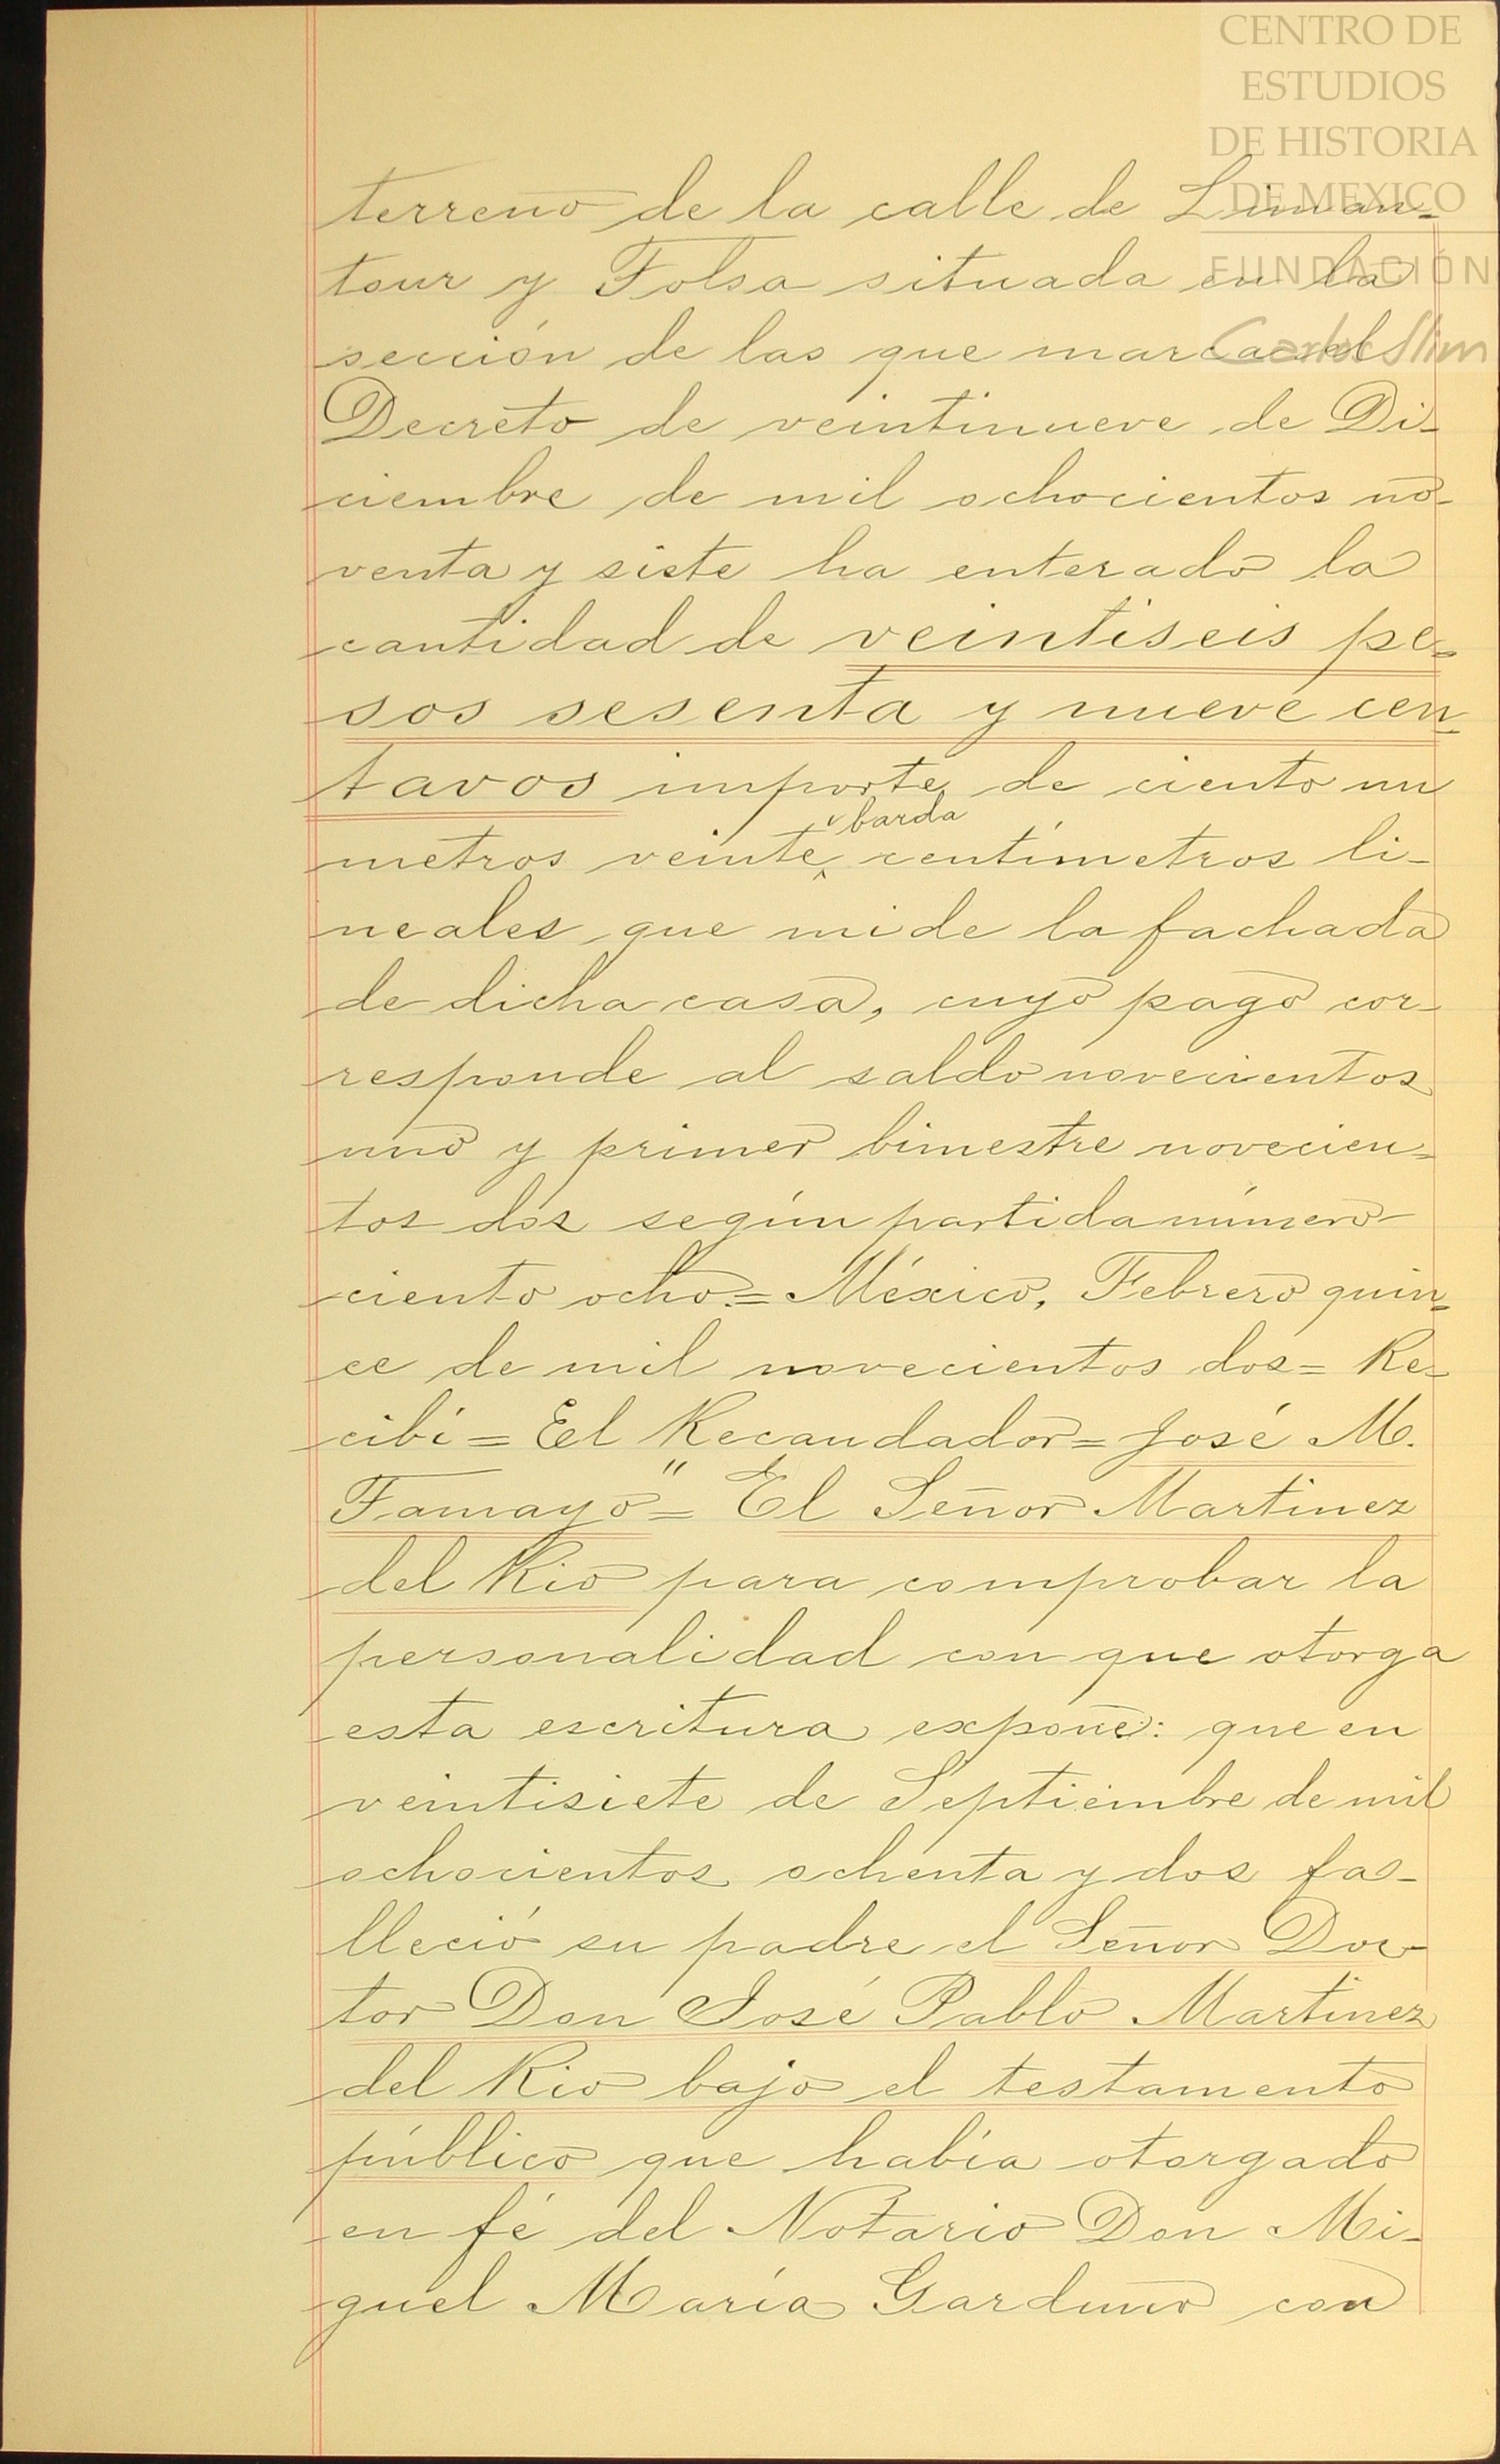 CENTRO DE
ESTUDIOS
DE HISTORIA
DE MEXICO
FUNDACIÓN
Carlos Slim
terreno de la calle de Liman=
tour y Tolsa situada en la
sección de las que marca el
Decreto de veintinueve de Di-
ciembre de mil ochocientos no-
venta y siete ha enterado la
cantidad de veintiseis pe=
sos sesenta y nueve cen=
tavos importe de ciento un
barda
metros veinte centímetros li-
neales que mide la fachada
de dicha casa, cuyo pago cor-
responde al saldo novecientos
uno y primer bimestre novecien=
tos dos según partida número
ciento ocho.= México, Febrero quin=
ce de mil novecientos dos= Re=
cibí= El Recaudador= José M.
Tamayo"= El Señor Martinez
del Rio para comprobar la
personalidad con que otorga
esta escritura expone: que en
veintisiete de Septiembre de mil
ochocientos ochenta y dos fa-
lleció su padre el Señor Doc-
tor Don José Pablo Martinez
del Rio bajo el testamento
público que había otorgado
en fé del Notario Don Mi-
guel María Garduño con